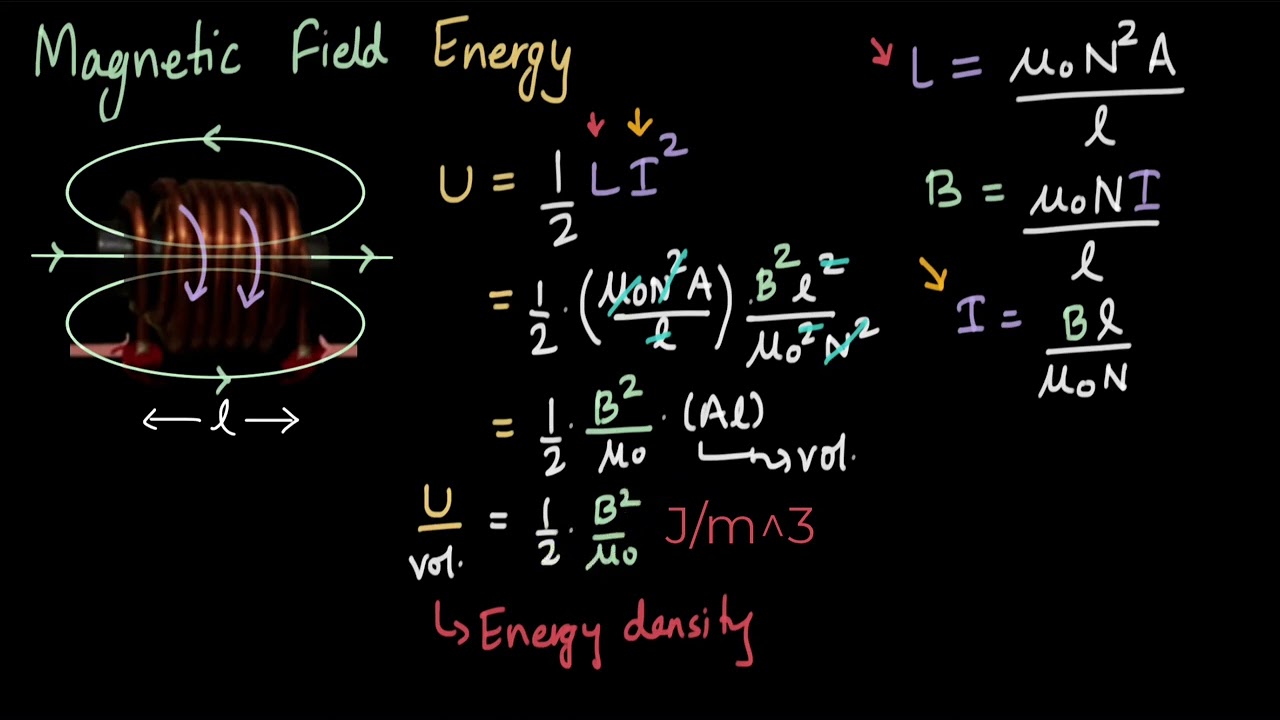 Magnetic Field Energy
U = 1/2 L I²
= 1/2 · (μ₀N²A / l) · B²l² / μ₀²N²
= 1/2 · B²/μ₀ · (Al)
→ vol.
U/vol. = 1/2 · B²/μ₀ J/m^3
↳ Energy density
← l →
L = μ₀N²A / l
B = μ₀NI / l
I = Bl / μ₀N